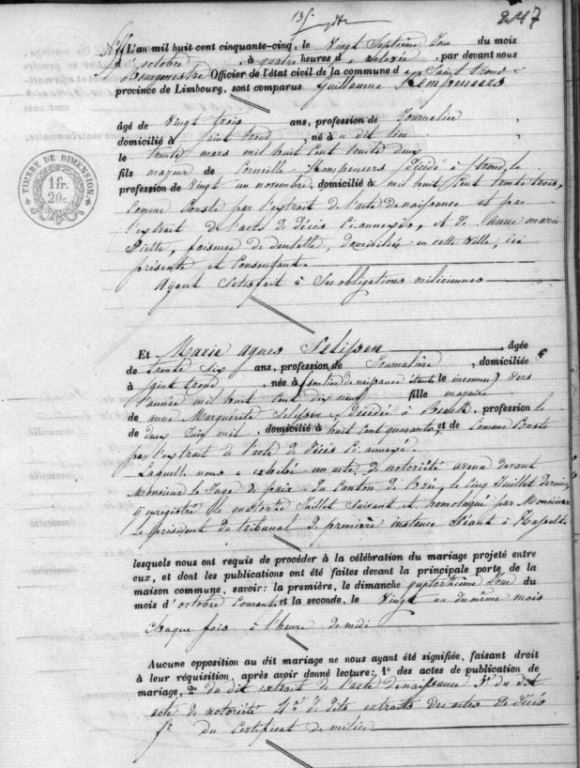 135
247
L'an mil huit cent cinquante-cinq, le Vingt Septième Jour du mois
d'octobre, à quatre heures d relevée, par devant nous
Bourgmestre Officier de l'état civil de la commune d Saint trond
province de Limbourg, sont comparus Guillaume Kempeneers
âgé de Vingt trois ans, profession de Journalier
domicilié à Saint trond, né à u dit lieu
le trente mars mil huit Cent trente deux
fils majeur de Corneille Kempeneers décédé à Strond, le
profession de Vingt un novembre, domicilié à mil huit Cent trente trois,
Comme Conste par l'extrait de l'acte de naissance et par
l'extrait de l'acte de décès Ci annexés, et de Anne marie
faiseuse de dentelle, domiciliée en cette Ville, ici
présente et Consentante.
Ayant Satisfait à Ses obligations miliciennes
TIMBRE DE DIMENSION
1 fr.
20 c.
Et Marie agnes Selissen, âgée
de trente Six ans, profession de Journalière, domiciliée
à Saint trond, née à (son lieu de naissance étant inconnu) Vers
l'année mil huit Cent dix neuf fille majeure
de anne Marguerite Selissen, décédée à, profession le
de deux Juin mil, domicilié à huit Cent quarante, et de Comme Conste
par l'extrait de l'acte de décès Ci annexé.
Laquelle nous a exhibé un acte de notoriété devant
Monsieur le Juge de paix du Canton de, le Cinq Juillet dernier,
enregistré le quatorze Juillet Suivant et homologué par Monsieur
le président du tribunal de première instance Séant à Hasselt
lesquels nous ont requis de procéder à la célébration du mariage projeté entre
eux, et dont les publications ont été faites devant la principale porte de la
maison commune, savoir: la première, le dimanche quatorzième Jour du
mois d'octobre Courant et la seconde, le Vingt un du même mois
Chaque fois à l'heure de midi
Aucune opposition au dit mariage ne nous ayant été signifiée, faisant droit
à leur réquisition, après avoir donné lecture: 1º des actes de publication de
mariage, 2º du dit extrait de l'acte de naissance 3º du dit
acte de notoriété 4º de dits extraits des actes de décès
5º du Certificat de milice